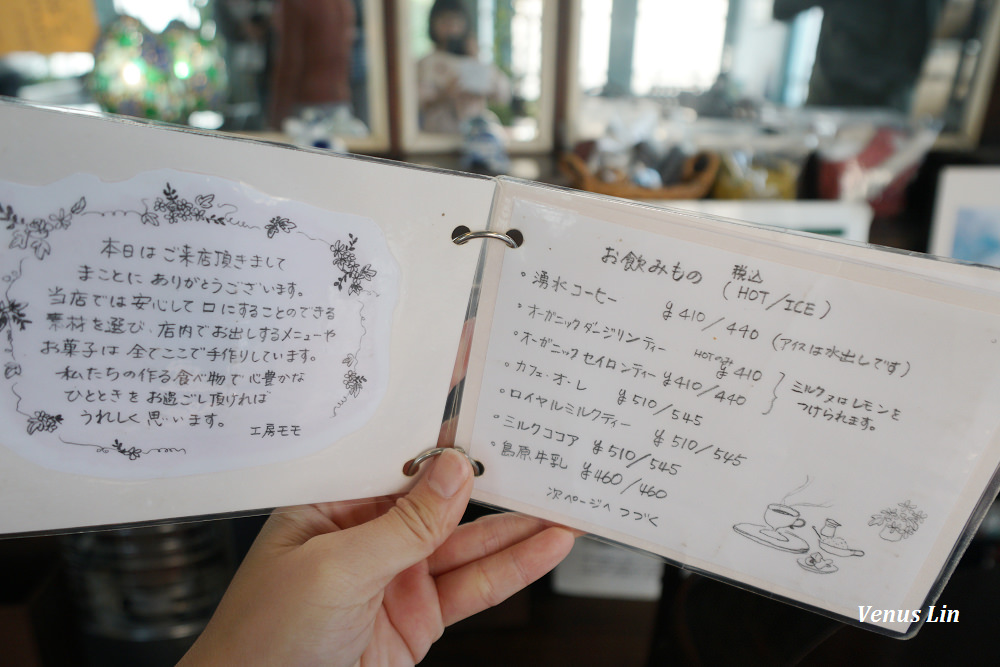 本日はご来店頂きまして
まことにありがとうございます。
当店では安心して口にすることのできる
素材を選び、店内でお出しするメニューや
お菓子は全てここで手作りしています。
私たちの作る食べ物で心豊かな
ひとときをお過ごし頂ければ
うれしく思います。
工房モモ
お飲みもの 税込 (HOT/ICE)
。湧水コーヒー ¥410/440 (アイスは水出しです)
。オーガニックダージリンティー HOTのみ ¥410
。オーガニックセイロンティー ¥410/440
ミルク又はレモンを
つけられます。
。カフェ・オ・レ ¥510/545
。ロイヤルミルクティー ¥510/545
。ミルクココア ¥510/545
。島原牛乳 ¥460/460
次ページへつづく
Venus Lin